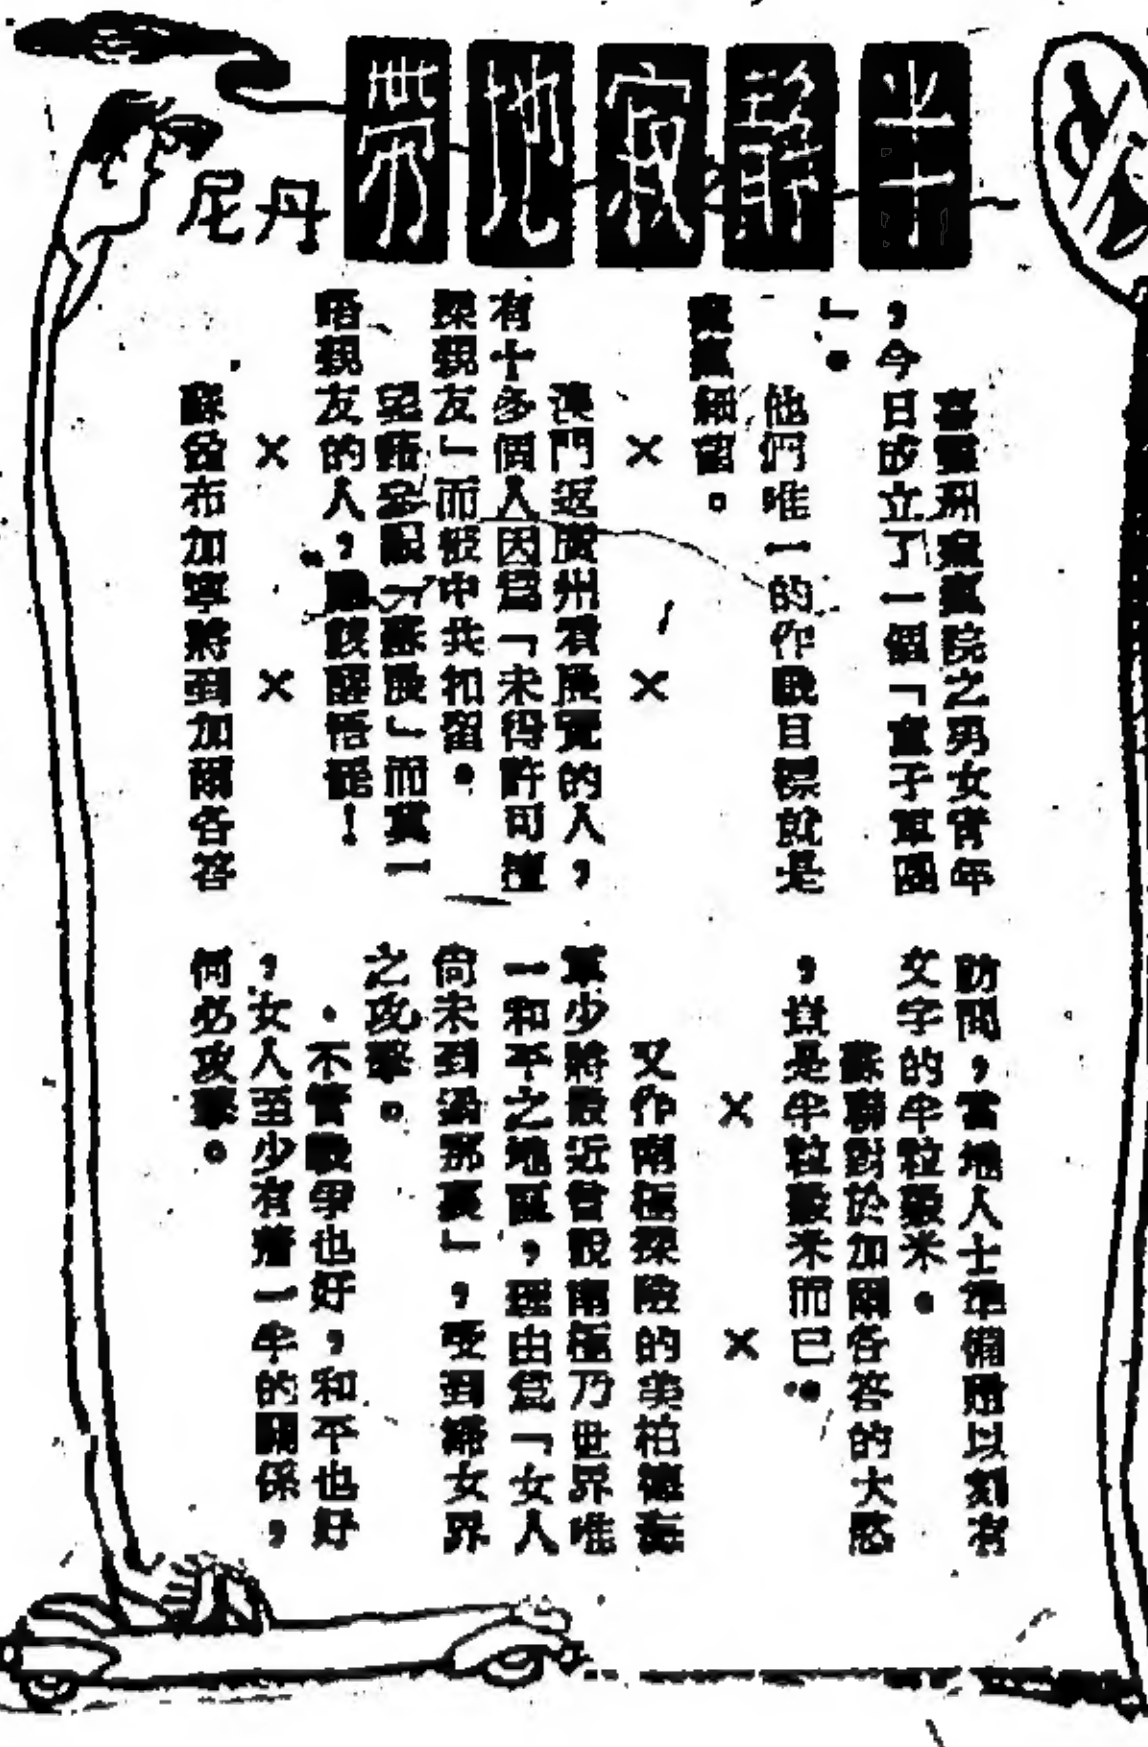 半靜寂地帶
丹尼
喜靈洲痲瘋院之男女青年
，今日成立了一個「童子軍團
」。
他們唯一的作戰目標就是
痲瘋細菌。
× ×
澳門返廣州看展覽的人，
有十多個人因爲「未得許可擅
探親友」而被中共扣留。
妄晤親友的人，應該醒悟罷！
× ×
蘇曾布加寧將到加爾各答
訪問，當地人士準備贈以刻有
文字的半粒穀米。
蘇聯對於加爾各答的大慾
，豈是半粒穀米而已。
× ×
又作南極探險的美柏德海
軍少將最近曾說南極乃世界唯
一和平之地區，理由爲「女人
尚未到過那裏」，受到婦女界
之攻擊。
不管戰爭也好，和平也好
，女人至少有着一半的關係，
何必攻擊。